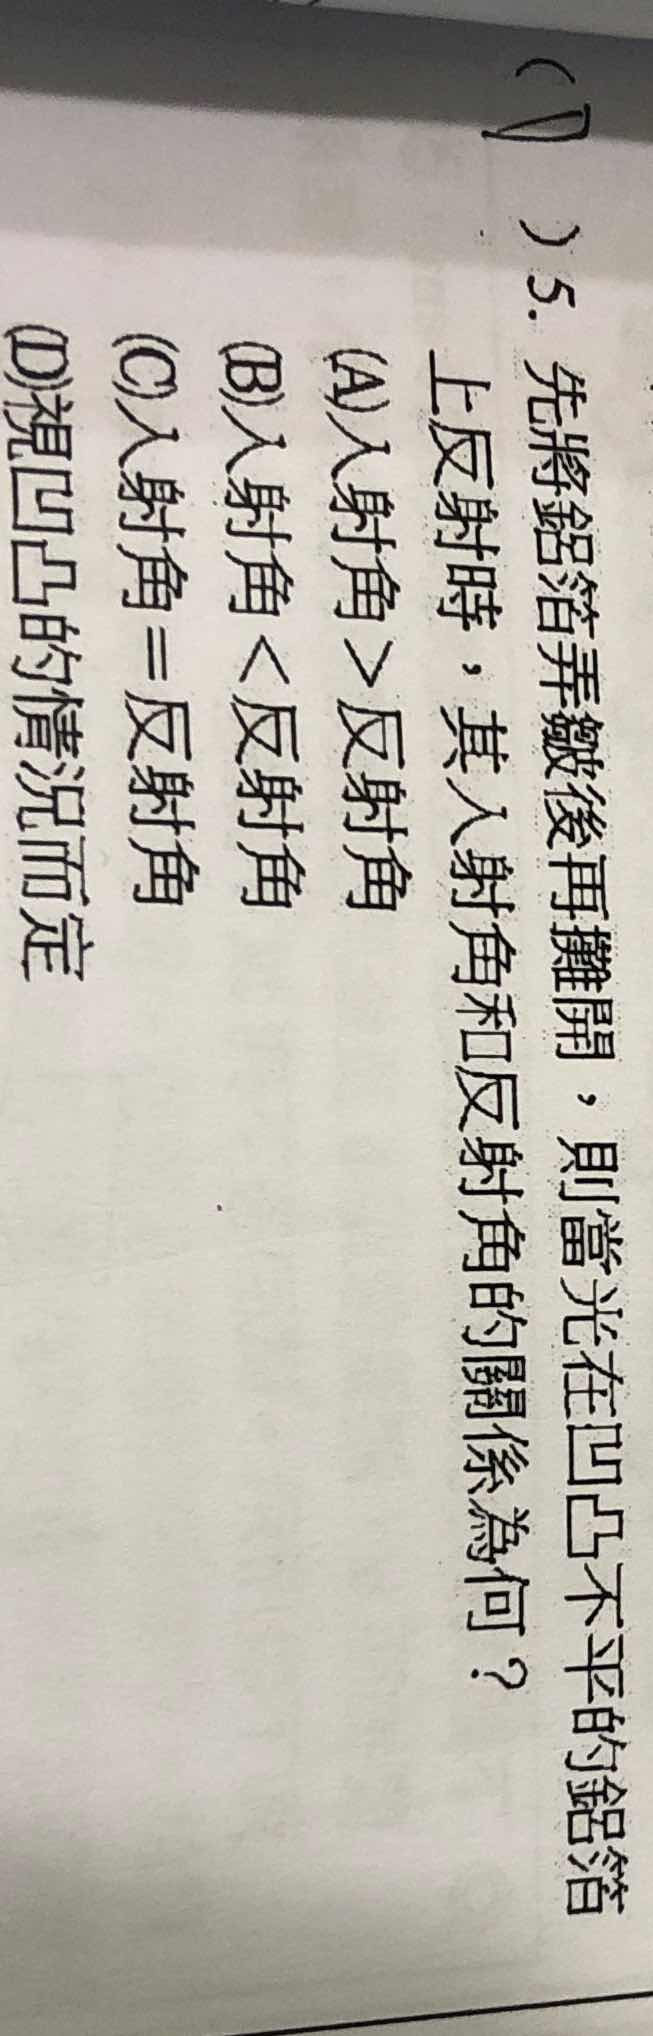 (D)5. 先將鋁箔弄皺後再攤開，則當光在凹凸不平的鋁箔
上反射時，其入射角和反射角的關係為何？
(A)入射角＞反射角
(B)入射角＜反射角
(C)入射角＝反射角
(D)視凹凸的情況而定